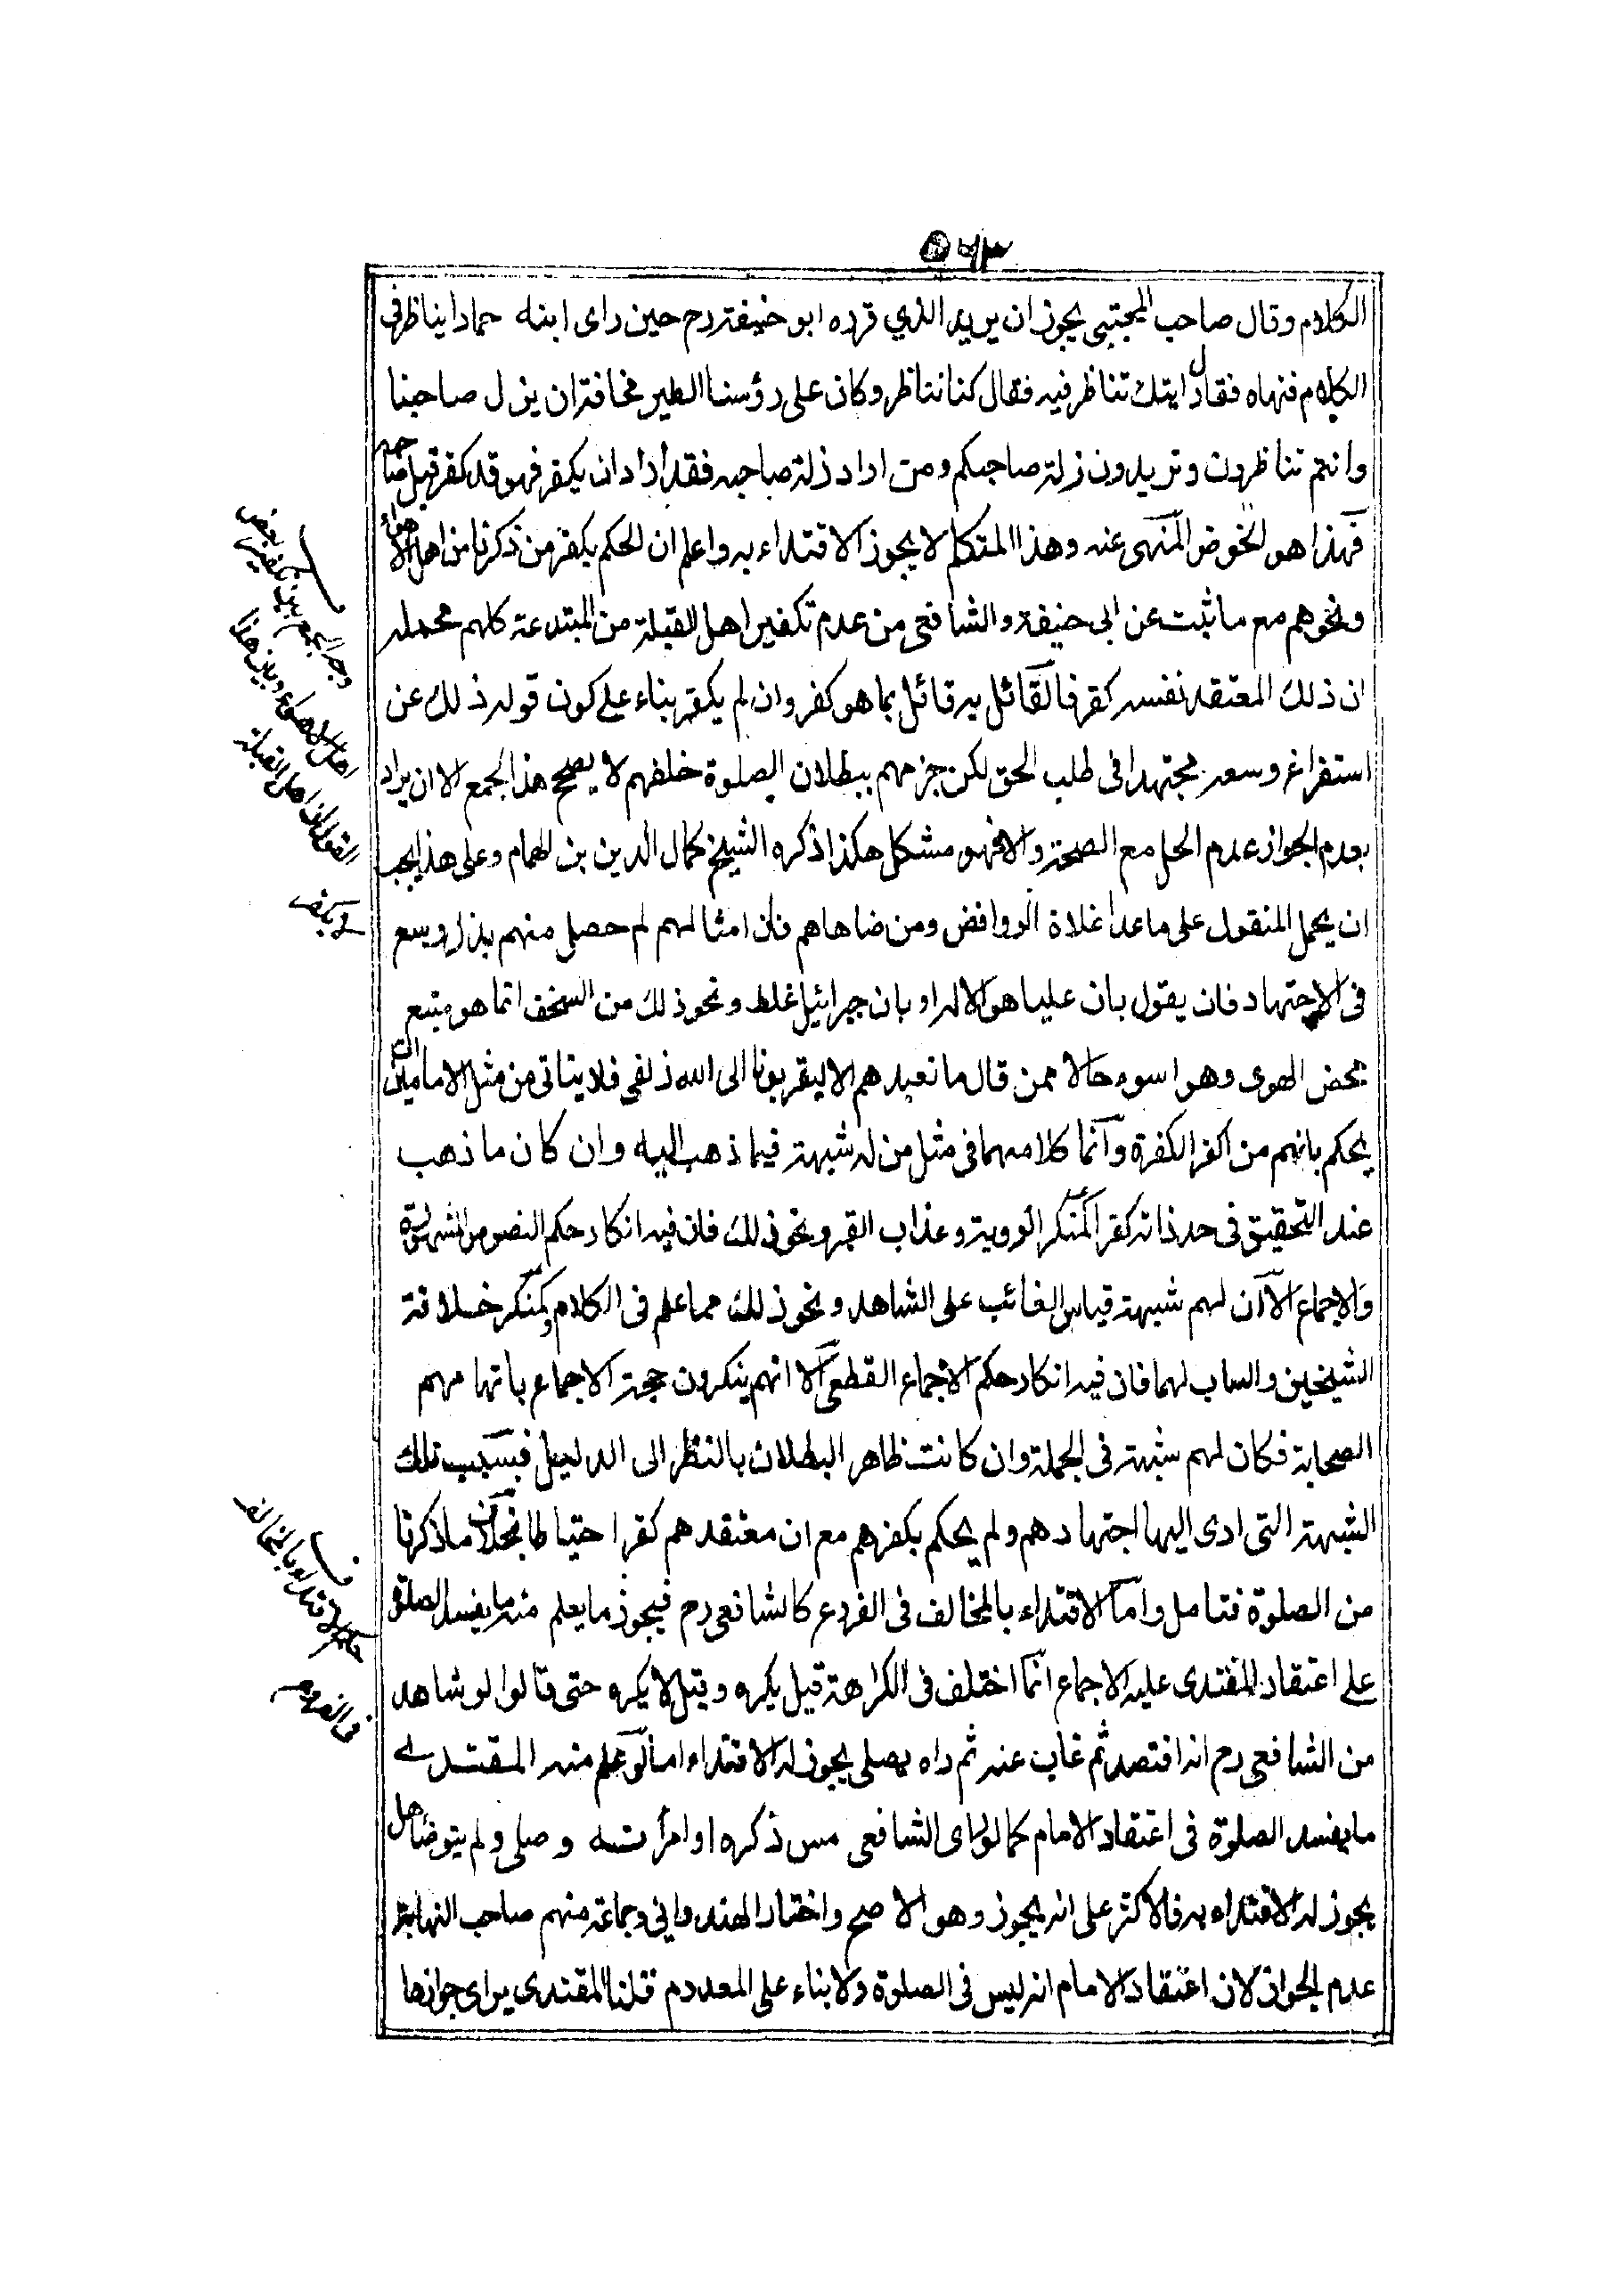 ٥٤٣
الكلام وقال صاحب المجتبى يجوز ان يريد الذي قرره ابو حنيفة رح حين راى ابنه حمادا يناظر فى
الكلام فنهاه فقال رايتك تناظر فيه فقال كنا نناظر وكان على رؤسنا الطير مخافة ان يزل صاحبنا
وانتم تناظرون وتريدون زلة صاحبكم ومن اراد زلة صاحبه فقد اراد ان يكفر فهو قد كفر قبل صاحبه
فهذا هو الخوض المنهى عنه وهذا المتكلم لا يجوز الاقتداء به واعلم ان الحكم بكفر من ذكرنا من اهل الاهواء
ونحوهم مع ما ثبت عن ابى حنيفة والشافعى من عدم تكفير اهل القبلة من المبتدعة كلهم محمله
ان ذلك المعتقد نفسه كفر فالقائل به قائل بما هو كفر وان لم يكفر بناء على كون قوله ذلك عن
استفراغ وسعه مجتهدا فى طلب الحق لكن جزمهم ببطلان الصلوة خلفهم لا يصحح هذا الجمع الا ان يراد
بعدم الجواز عدم الحل مع الصحة والا فهو مشكل هكذا ذكره الشيخ كمال الدين بن الهمام وعلى هذا يجب
ان يحمل المنقول على ما عدا غلاة الروافض ومن ضاهاهم فان امثالهم لم حصل منهم بذل وسع
فى الاجتهاد فان يقول بان عليا هو الاله او بان جبرائيل غلط ونحو ذلك من السخف انما هو متبع
محض الهوى وهو اسوء حالا ممن قال ما نعبدهم الا ليقربونا الى الله زلفى فلا يتاتى من مثل الامامين ان
يحكم بانهم من اكفر الكفرة وانما كلامهما فى مثل من له شبهة فيما ذهب اليه وان كان ما ذهب
عند التحقيق فى حد ذاته كفرا كمنكر الروية وعذاب القبر ونحو ذلك فان فيه انكار حكم النصوص المشهورة
والاجماع الا ان لهم شبهة قياس الغائب على الشاهد ونحو ذلك مما علم فى الكلام وكمنكر خلافة
الشيخين والساب لهما فان فيه انكار حكم الاجماع القطعى الا انهم ينكرون حجة الاجماع باتهامهم
الصحابة فكان لهم شبهة فى الجملة وان كانت ظاهر البطلان بالنظر الى الدليل فبسبب تلك
الشبهة التى ادى اليها اجتهادهم ولم يحكم بكفرهم مع ان معتقدهم كفر احتياطا بخلاف ما ذكرنا
من الصلوة فتامل واما الاقتداء بالمخالف فى الفروع كالشافعى رح فيجوز ما يعلم منه ما يفسد الصلوة
على اعتقاد المقتدى عليه الاجماع انما اختلف فى الكراهة قيل يكره وقيل لا يكره حتى قالوا لو شاهد
من الشافعى رح انه افتصد ثم غاب عنه ثم راه يصلى يجوز له الاقتداء اما لو علم منه المقتدى
ما يفسد الصلوة فى اعتقاد الامام كما لو راى الشافعى مس ذكره او امرأته وصلى ولم يتوضأ هل
يجوز له الاقتداء به فالاكثر على انه يجوز وهو الاصح واختار الهندوانى وجماعة منهم صاحب النهاية
عدم الجواز لان اعتقاد الامام انه ليس فى الصلوة ولا بناء على المعدوم قلنا المقتدى يراى جوازها
وجه الجمع بين تكفير بعض
اهل الاهواء وبين هذا
القول ان اهل القبلة
لا يكفر
حكم الاقتداء بالمخالف
فى الفروع